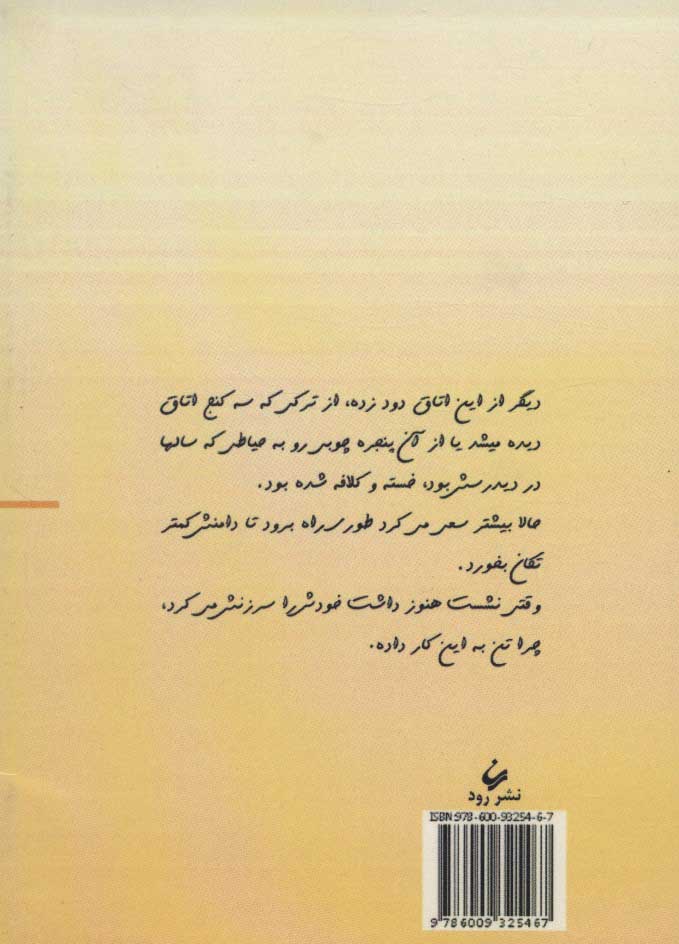 دیگر از این اتاق دود زده، از ترکی که سه کنج اتاق
دیده میشد یا از آن پنجره چوبی رو به حیاطی که سالها
در دیدرسش بود، خسته و کلافه شده بود.
حالا بیشتر سعی می کرد طوری راه برود تا دامنش کمتر
تکان بخورد.
وقتی نشست هنوز داشت خودش را سرزنش می کرد،
چرا تن به این کار داده.
نشر رود
ISBN:978-600-93254-6-7
9 786009 325467